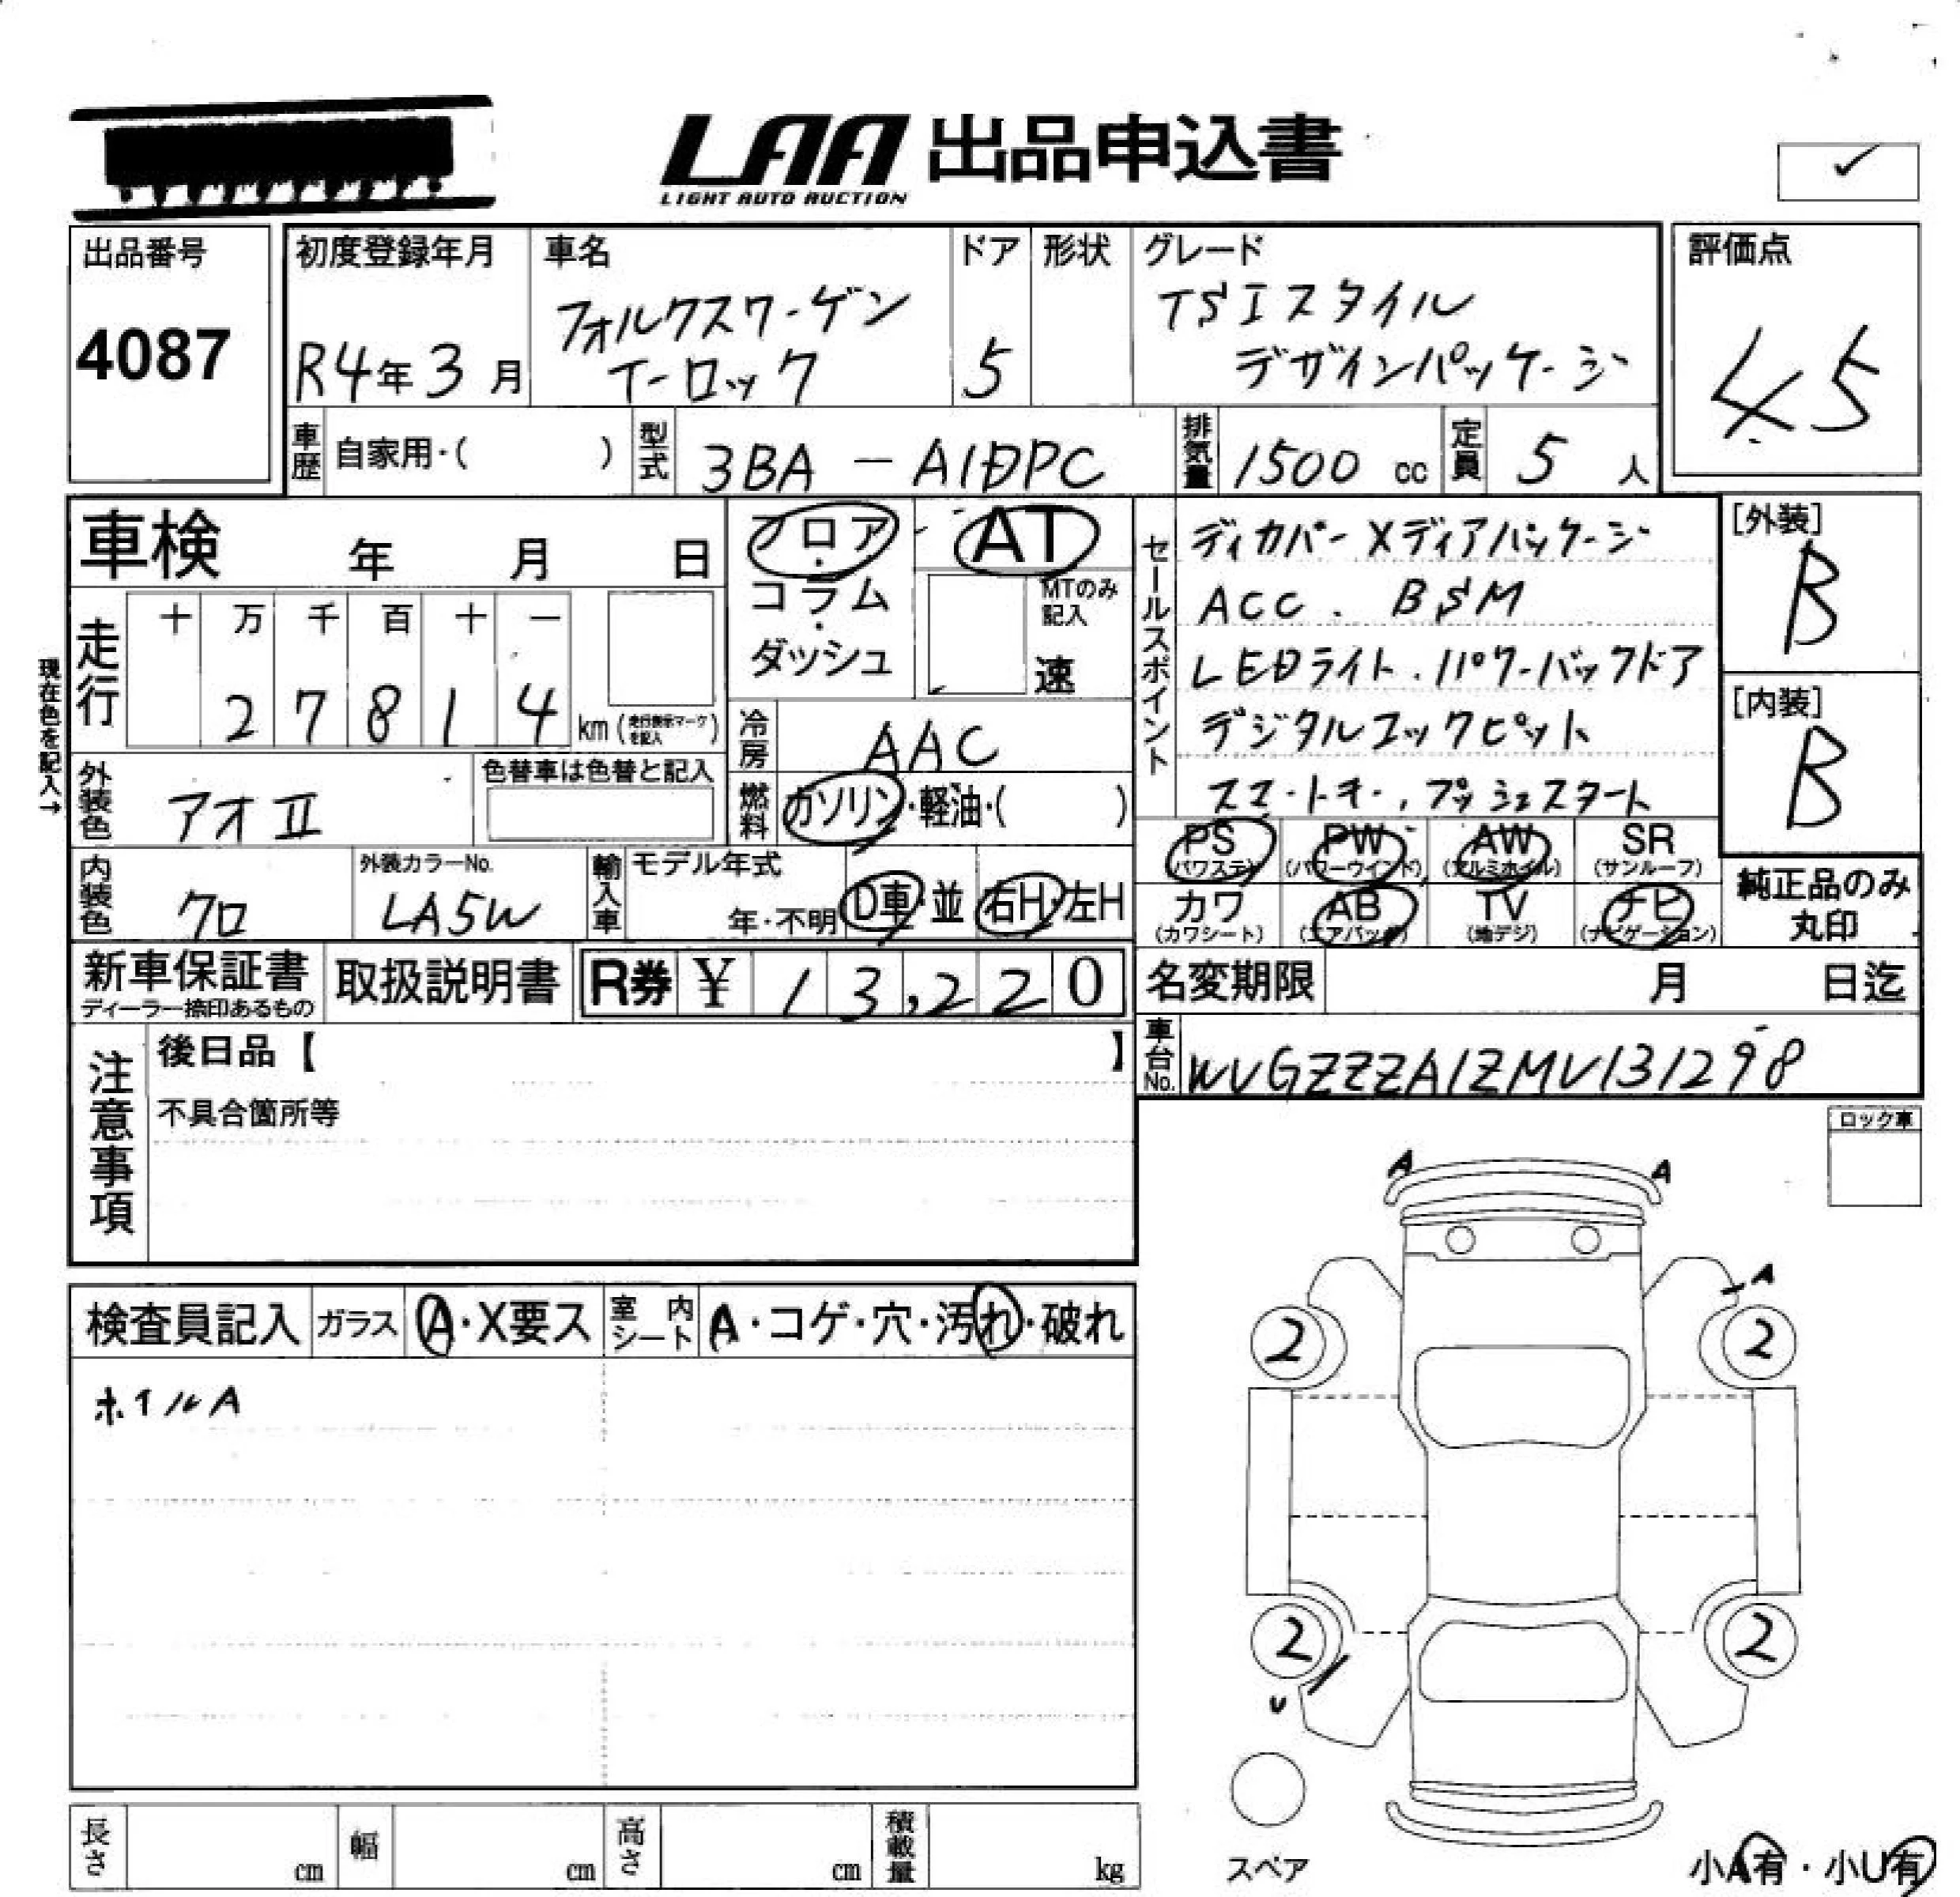 LAA 出品申込書
LIGHT AUTO AUCTION
出品番号
4087
初度登録年月
R4年3月
車名
フォルクスワーゲン
T-ロック
ドア
5
形状
グレード
TSIスタイル
デザインパッケージ
評価点
45
車歴 自家用・( )
型式 3BA-A1DPC
排気量 1500 cc
定員 5 人
車検 年 月 日
フロア・コラム・ダッシュ
AT
MTのみ記入
速
走行
十 万 千 百 十 一
2 7 8 1 4 km (走行表示マークを記入)
現在色を記入→
冷房 AAC
外装色 アオⅡ
色替車は色替と記入
燃料 ガソリン・軽油・( )
内装色 クロ
外装カラーNo.
LA5W
輸入車
モデル年式
年・不明
D車・並
右H・左H
セールスポイント
ディカバーメディアパッケージ
ACC. BSM
LEDライト.パワーバックドア
デジタルコックピット
スマートキー,プッシュスタート
[外装]
B
[内装]
B
PS (パワステ)
PW (パワーウインド)
AW (アルミホイル)
SR (サンルーフ)
カワ (カワシート)
AB (エアバッグ)
TV (地デジ)
ナビ (ナビゲーション)
純正品のみ
丸印
新車保証書
ディーラー捺印あるもの
取扱説明書
R券 ¥ 13,220
名変期限 月 日迄
車台No. WVGZZZA1ZMV131298
注意事項
後日品【 】
不具合箇所等
ロック車
検査員記入
ガラス A・X要ス
室内シート A・コゲ・穴・汚れ・破れ
ホイルA
A
A
A
2
2
2
2
U
スペア
小A有・小U有
長さ cm
幅 cm
高さ cm
積載量 kg